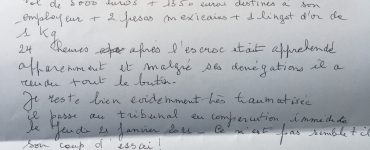 Vol de 5000 euros + 1350 euros destinés à son
employeur + 2 pesos mexicains + 1 lingot d'or de
1 Kg
24 heures après l'escroc était appréhendé
apparemment et malgré ses dénégations il a
rendu tout le butin.
Je reste bien evidemment très traumatisée
il passe au tribunal en comparution immédiate
le jeudi 21 janvier 2021 - Ce n'est pas semble t il
son coup d'essai !